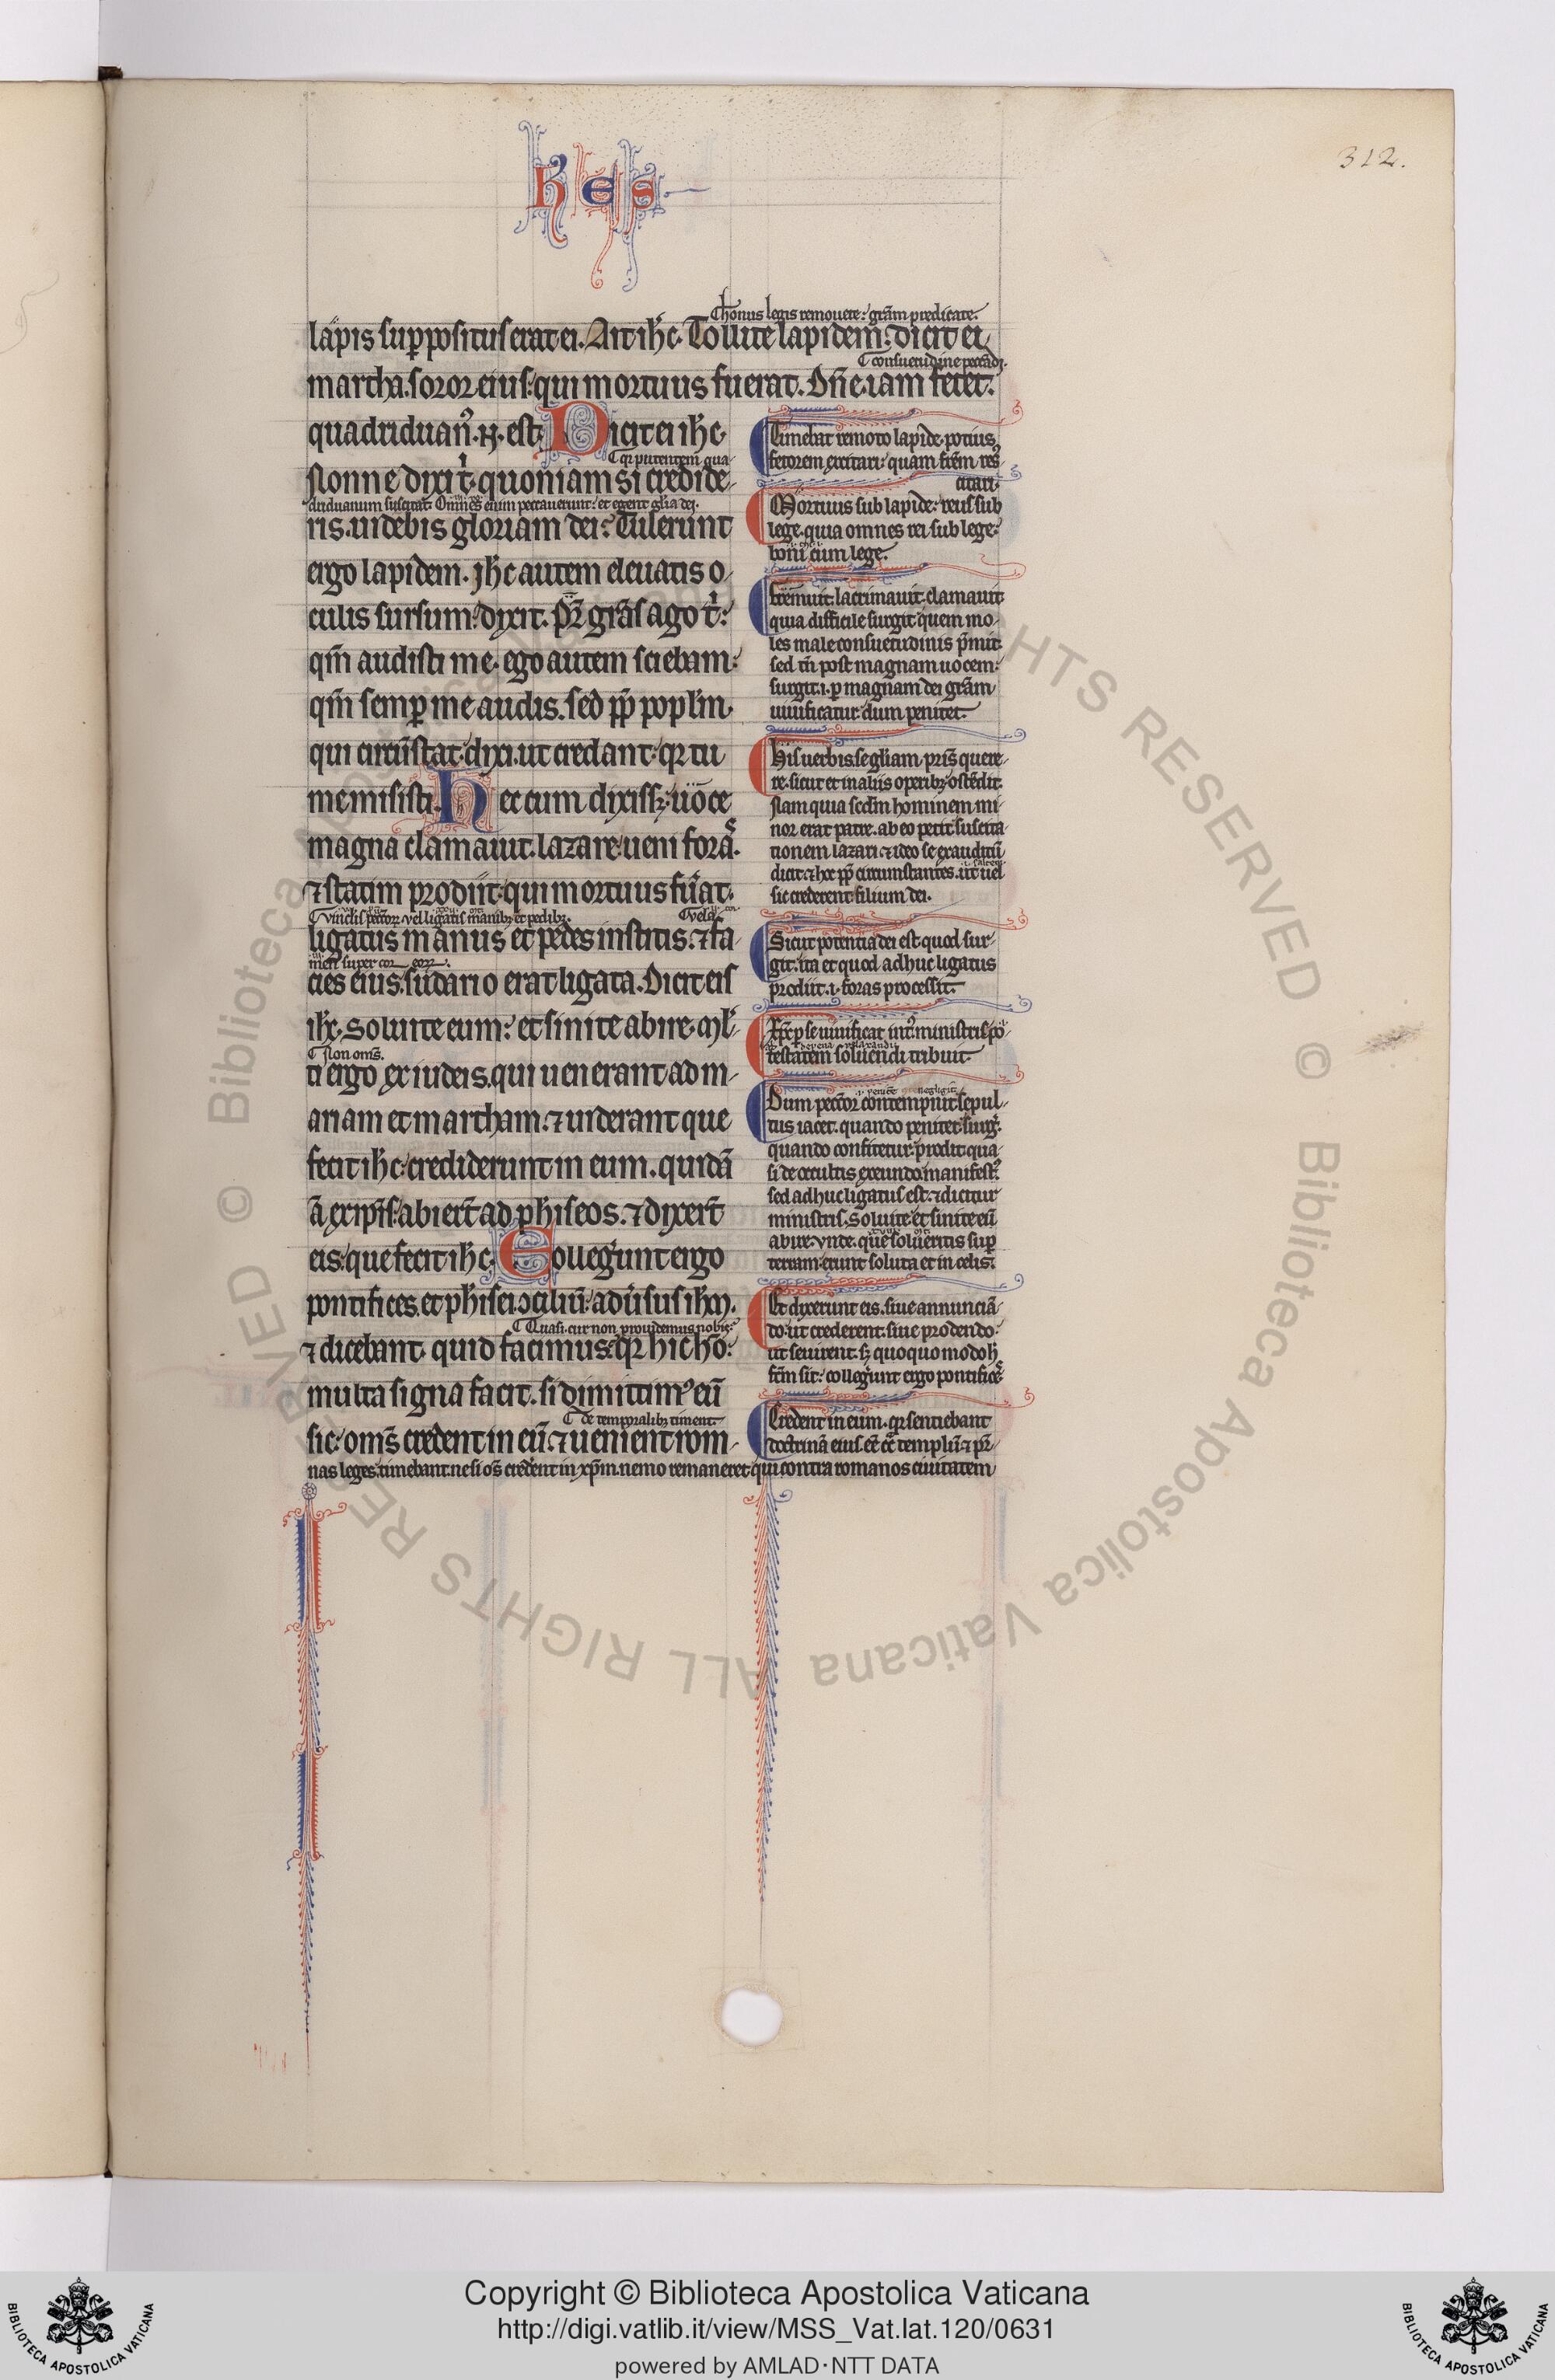 312.
hes
⸿ honus legis remouete: grãm predicate.
lapis suppositus erat ei. Ait ihc̄. Tollite lapidem. dicit ei
⸿ consuetudine peccãdi.
martha. soror eius: qui mortuus fuerat. Dn̄e. iam fetet.
quadriduanꝰ. .n. est. Dicit ei ihc̄.
⸿ qꝛ putentem qua
Nonne dixi t̉. quoniam si credide
driduanum suscitat. Omnes enim peccauerunt: et egent gl̄ia dei.
ris. uidebis gloriam dei? Tulerunt
ergo lapidem. Ihc̄ autem eleuatis o
culis sursum: dixit. Pr̄ grãs ago t̉:
qm̄ audisti me. ego autem sciebam:
qm̄ semꝑ me audis. sed ꝓp̄ popl̄m
qui circũstat. dixi. ut credant: qꝛ tu
me misisti. Hec cum dixissꝫ: uoce
magna clamauit. lazare ueni foras.
⁊ statim prodiit: qui mortuus fu̓at.
⸿ Vinclis peccatorꝝ. vel ligatis manibꝫ et pedibꝫ.
ligatus manus et pedes institis. ⁊ fa
⸿ velamen super cor eorꝝ.
cies eius. sudario erat ligata. Dicit eis
ihc̄. Soluite eum: et sinite abire. Ml̓
⸿ Non oms̄.
ti ergo ex iudeis. qui uenerant ad m
ariam et martham: ⁊ uiderant que
fecit ihc̄: crediderunt in eum. quidã
ã ex ip̄is: abiert̄ ad phiseos. ⁊ dixert̄
eis: que fecit ihc̄. Collegerunt ergo
pontifices. et phisei. ↄciliũ: adu̓sus ihm̄.
⸿ Quasi. cur non prouidemus nobis.
⁊ dicebant. quid facimus: qꝛ hic hõ:
multa signa facit. si dimittimꝰ eũ
⸿ de temporalibꝫ timent.
sic: oms̄ credent in eũ. ⁊ uenient rom
nas leges. timebant. ne si os̄ credent in xp̄m. nemo remaneret qui contra romanos ciuitatem
Timebat remoto lapide. potius
fetorem excitari: quam frēm res̄
citari.
Mortuus sub lapide: reus sub
lege. quia omnes rei sub lege:
boni cum lege.
fremuit. lacrimauit. clamauit
quia difficile surgit quem mo
les male consuetudinis p̄mit.
sed tn̄ post magnam uocem:
surgit. .i. ꝑ magnam dei grãm
uiuificatur dum penitet.
His uerbis. se gl̄iam pris̄ quere
re. sicut et in aliis operibꝫ ostēdit.
Nam quia scd̄m hominem mi
nor erat patre. ab eo petit suscita
tionem lazari. ⁊ ideo se exauditũ
dicit. ⁊ hoc ꝓp̄ circumstantes. ut uel
sic crederent filium dei.
Sicut potentia dei est quod sur
git: ita et quod adhuc ligatus
prodiit. .i. foras processit.
Xp̄c ꝑ se uiuificat intꝰ. ministris po
testatem soluendi tribuit.
Dum peccor̄ contempnit: sepul
tus iacet. quando penitet: surg̓.
quando confitetur: prodit. qua
si de occultis exeundo. manifestꝰ.
sed adhuc ligatus est: ⁊ dicitur
ministris. Soluite: et sinite eũ
abire. vnde. que solueritis sup̄
terram: erunt soluta et in celis.
Et dixerunt eis. siue annunciã
do: ut crederent. siue prodendo:
ut seuirent. sꝫ quoquo modo h̓
fctm̄ sit: collegerunt ergo pontifices̄
Credent in eum. qꝛ sentiebant
doctrinã eius. eē cō templũ. ⁊ pr̄
© Biblioteca Apostolica Vaticana ALL RIGHTS RESERVED
Copyright © Biblioteca Apostolica Vaticana
http://digi.vatlib.it/view/MSS_Vat.lat.120/0631
powered by AMLAD·NTT DATA
BIBLIOTECA APOSTOLICA VATICANA
BIBLIOTECA APOSTOLICA VATICANA